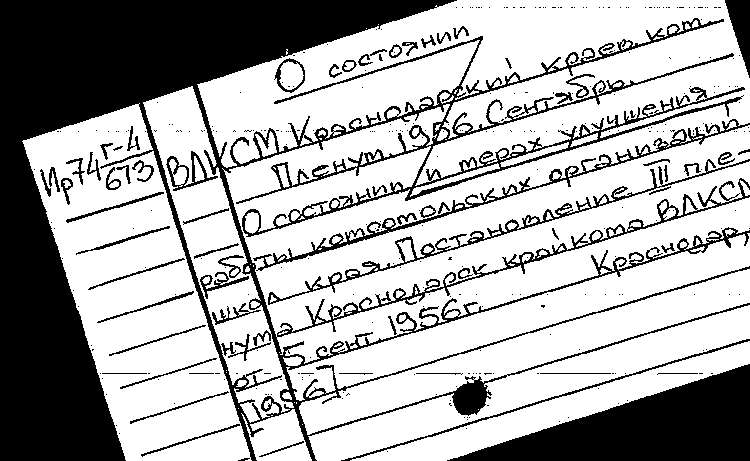 О состоянии
Ир74 г-4/613
ВЛКСМ. Краснодарский краев. ком.
Пленум. 1956. Сентябрь.
О состоянии и мерах улучшения
работы комсомольских организаций
школ края. Постановление III пле-
нума Краснодарск. крайкома ВЛКСМ
от 5 сент. 1956г. Краснодар,
[1956].